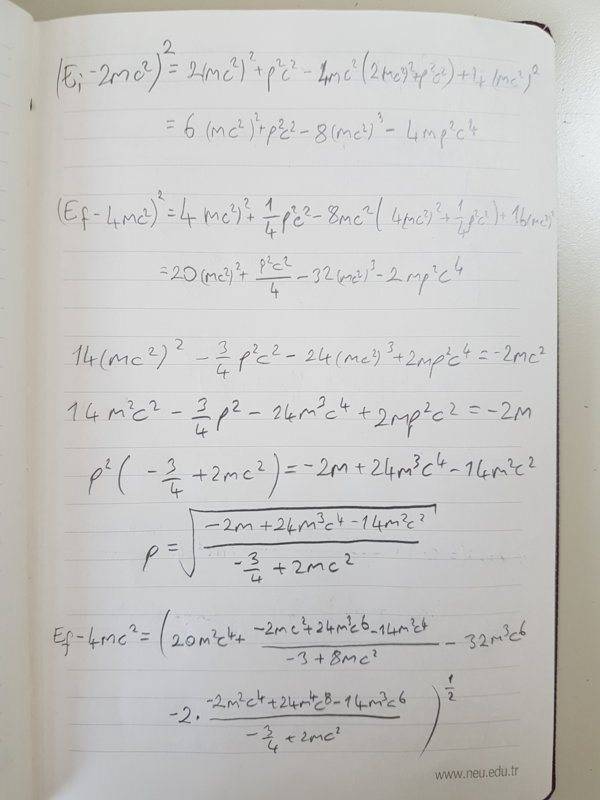 (Ei - 2mc²)² = 2(mc²)² + p²c² - 4mc² (2(mc²)² + p²c²) + 4(mc²)²
= 6 (mc²)² + p²c² - 8(mc²)³ - 4mp²c⁴
(Ef - 4mc²)² = 4(mc²)² + 1/4 p²c² - 8mc² (4(mc²)² + 1/4 p²c²) + 16(mc²)²
= 20(mc²)² + p²c²/4 - 32(mc²)³ - 2mp²c⁴
14(mc²)² - 3/4 p²c² - 24(mc²)³ + 2mp²c⁴ = -2mc²
14m²c² - 3/4 p² - 24m³c⁴ + 2mp²c² = -2m
p² ( -3/4 + 2mc² ) = -2m + 24m³c⁴ - 14m²c²
p = √((-2m + 24m³c⁴ - 14m²c²)/(-3/4 + 2mc²))
Ef - 4mc² = ( 20m²c⁴ + (-2mc² + 24m³c⁶ - 14m²c⁴)/(-3 + 8mc²) - 32m³c⁶
-2 · (-2m²c⁴ + 24m⁴c⁸ - 14m³c⁶)/(-3/4 + 2mc²) )^1/2
www.neu.edu.tr